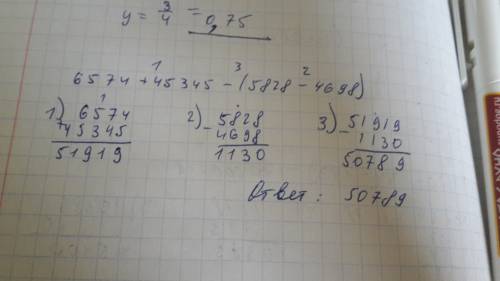 y = 3/4 = 0,75
6574 + 45345 - (5828 - 4698)
1 3 2
1) 6574 + 45345 = 51919
2) 5828 - 4698 = 1130
3) 51919 - 1130 = 50789
Ответ: 50789